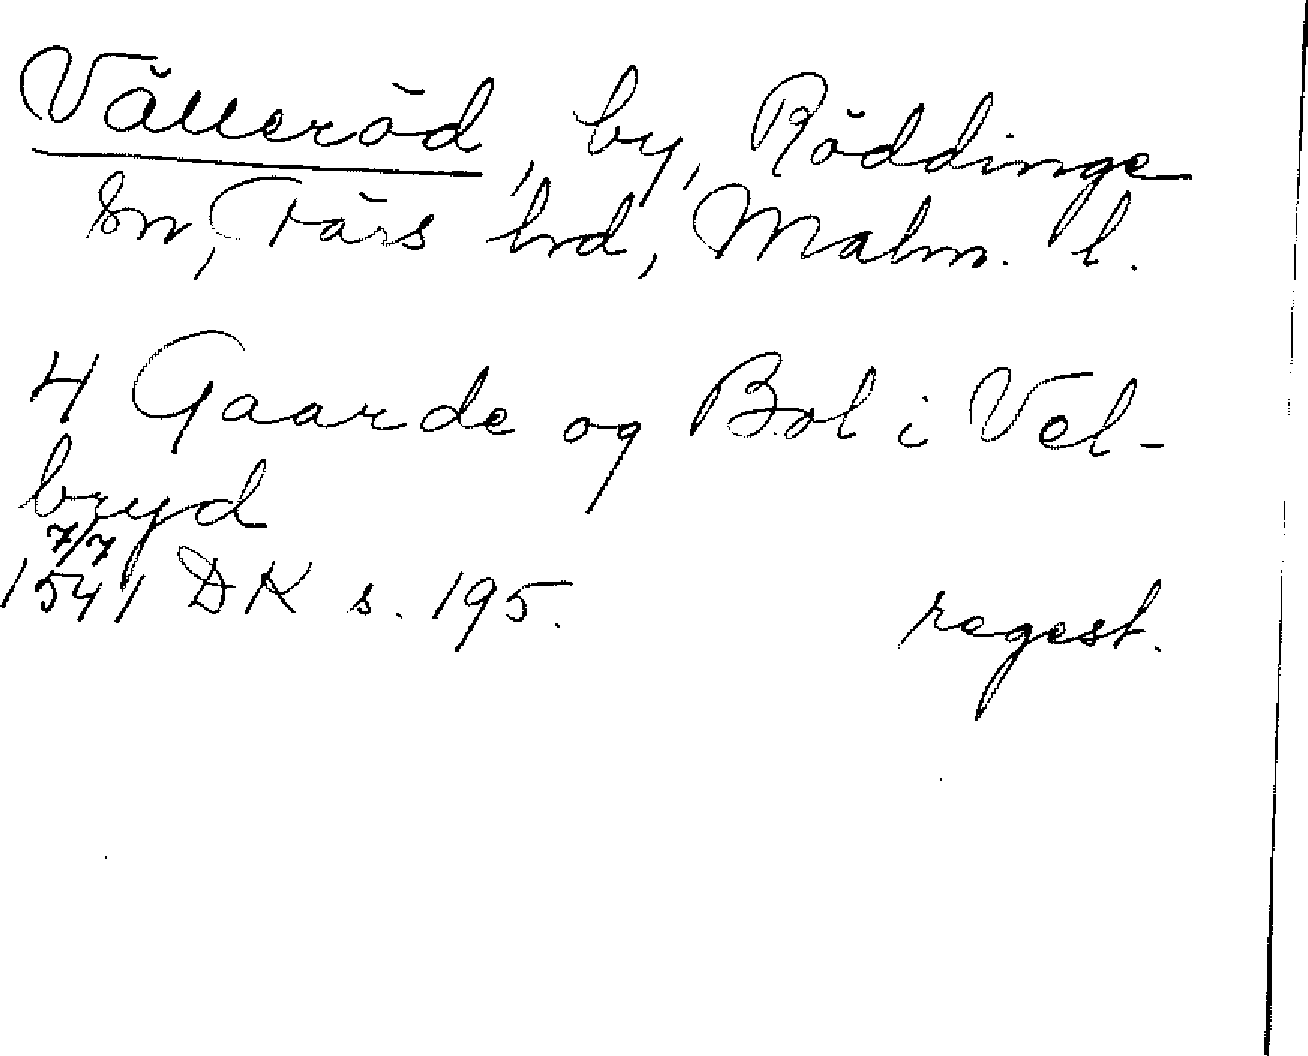 Välleröd, by, Röddinge
sn, Färs hd, Malm. l.
4 Gaarde og Bol i Vel-
bryd
7/7
1541 DK s. 195. regest.